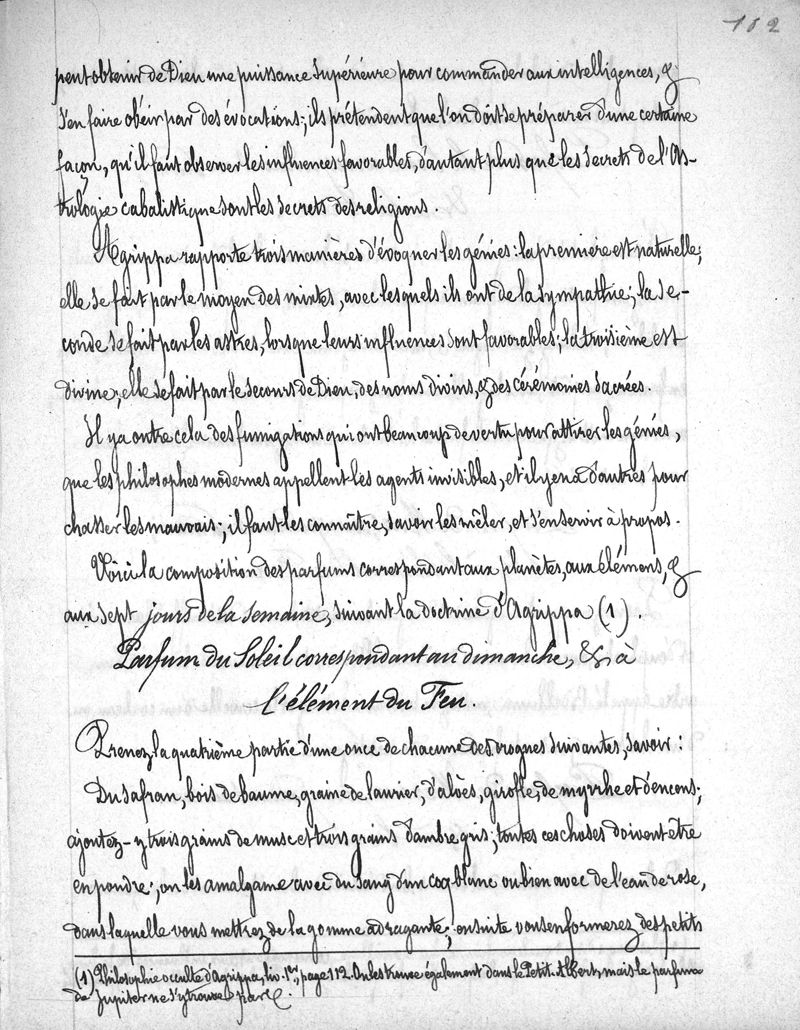 102
peut obtenir de Dieu une puissance supérieure pour commander aux intelligences, &
s'en faire obéir par des évocations; ils prétendent que l'on doit se préparer d'une certaine
façon, qu'il faut observer les influences favorables, d'autant plus que les secrets de l'As-
trologie cabalistique sont les secrets des religions.
Agrippa rapporte trois manières d'évoquer les génies: la première est naturelle;
elle se fait par le moyen des mixtes, avec lesquels ils ont de la sympathie; la se-
conde se fait par les astres, lorsque leurs influences sont favorables; la troisième est
divine, elle se fait par le secours de Dieu, des noms divins, & des cérémonies sacrées.
Il y a outre cela des fumigations qui ont beaucoup de vertu pour attirer les génies,
que les philosophes modernes appellent les agents invisibles, et il y en a d'autres pour
chasser les mauvais; il faut les connaître, savoir les mêler, et s'en servir à propos.
Voici la composition des parfums correspondant aux planètes, aux éléments, &
aux sept jours de la semaine, suivant la doctrine d'Agrippa (1).
Parfum du Soleil correspondant au dimanche, & à
l'élément du Feu.
Prenez la quatrième partie d'une once de chacune des drogues suivantes, savoir:
Du safran, bois de baume, graine de laurier, d'aloès, girofle, de myrrhe et d'encens;
ajoutez-y trois grains de musc et trois grains d'ambre gris; toutes ces choses doivent être
en poudre; on les amalgame avec du sang d'un coq blanc ou bien avec de l'eau de rose,
dans laquelle vous mettrez de la gomme adragante; ensuite vous en formerez des petits
(1) Philosophie occulte d'Agrippa, liv. 1er, page 112. On les trouve également dans le Petit-Albert, mais le parfum
de Jupiter ne s'y trouve